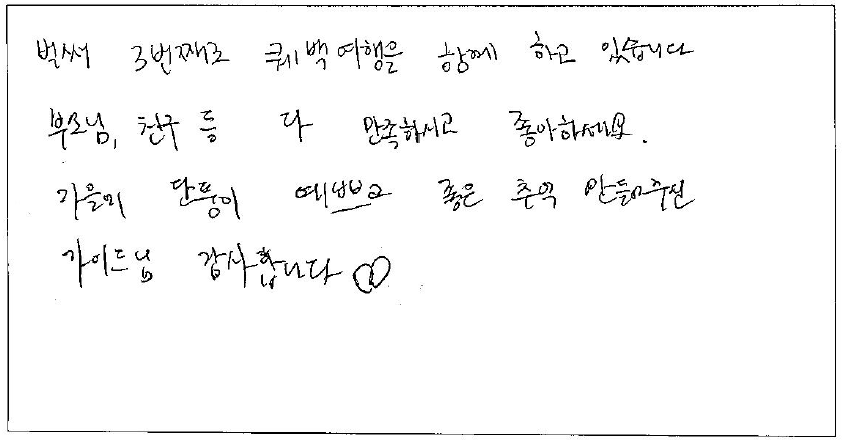 벌써 3번째로 퀘백여행을 함께 하고 있습니다
부모님, 친구 등 다 만족하시고 좋아하세요.
가을의 단풍이 예쁘고 좋은 추억 만들어주신
가이드님 감사합니다